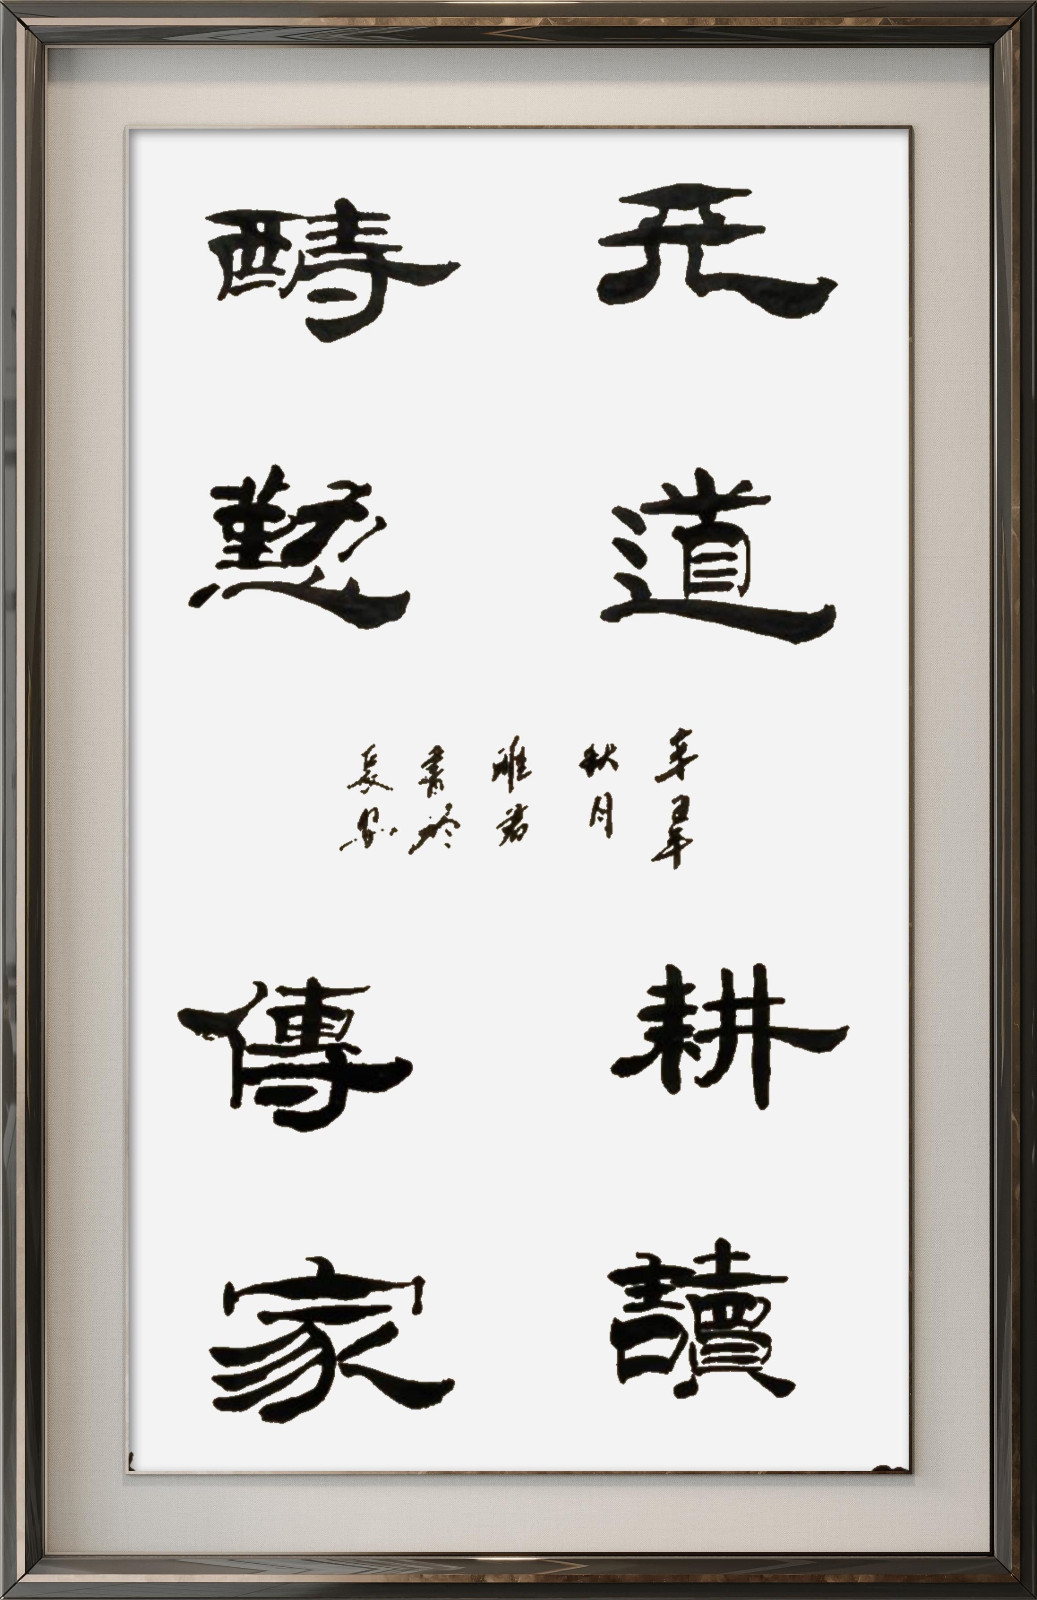 天道
酬懃
辛丑年
秋月
雅君
書於
耕讀
傳家